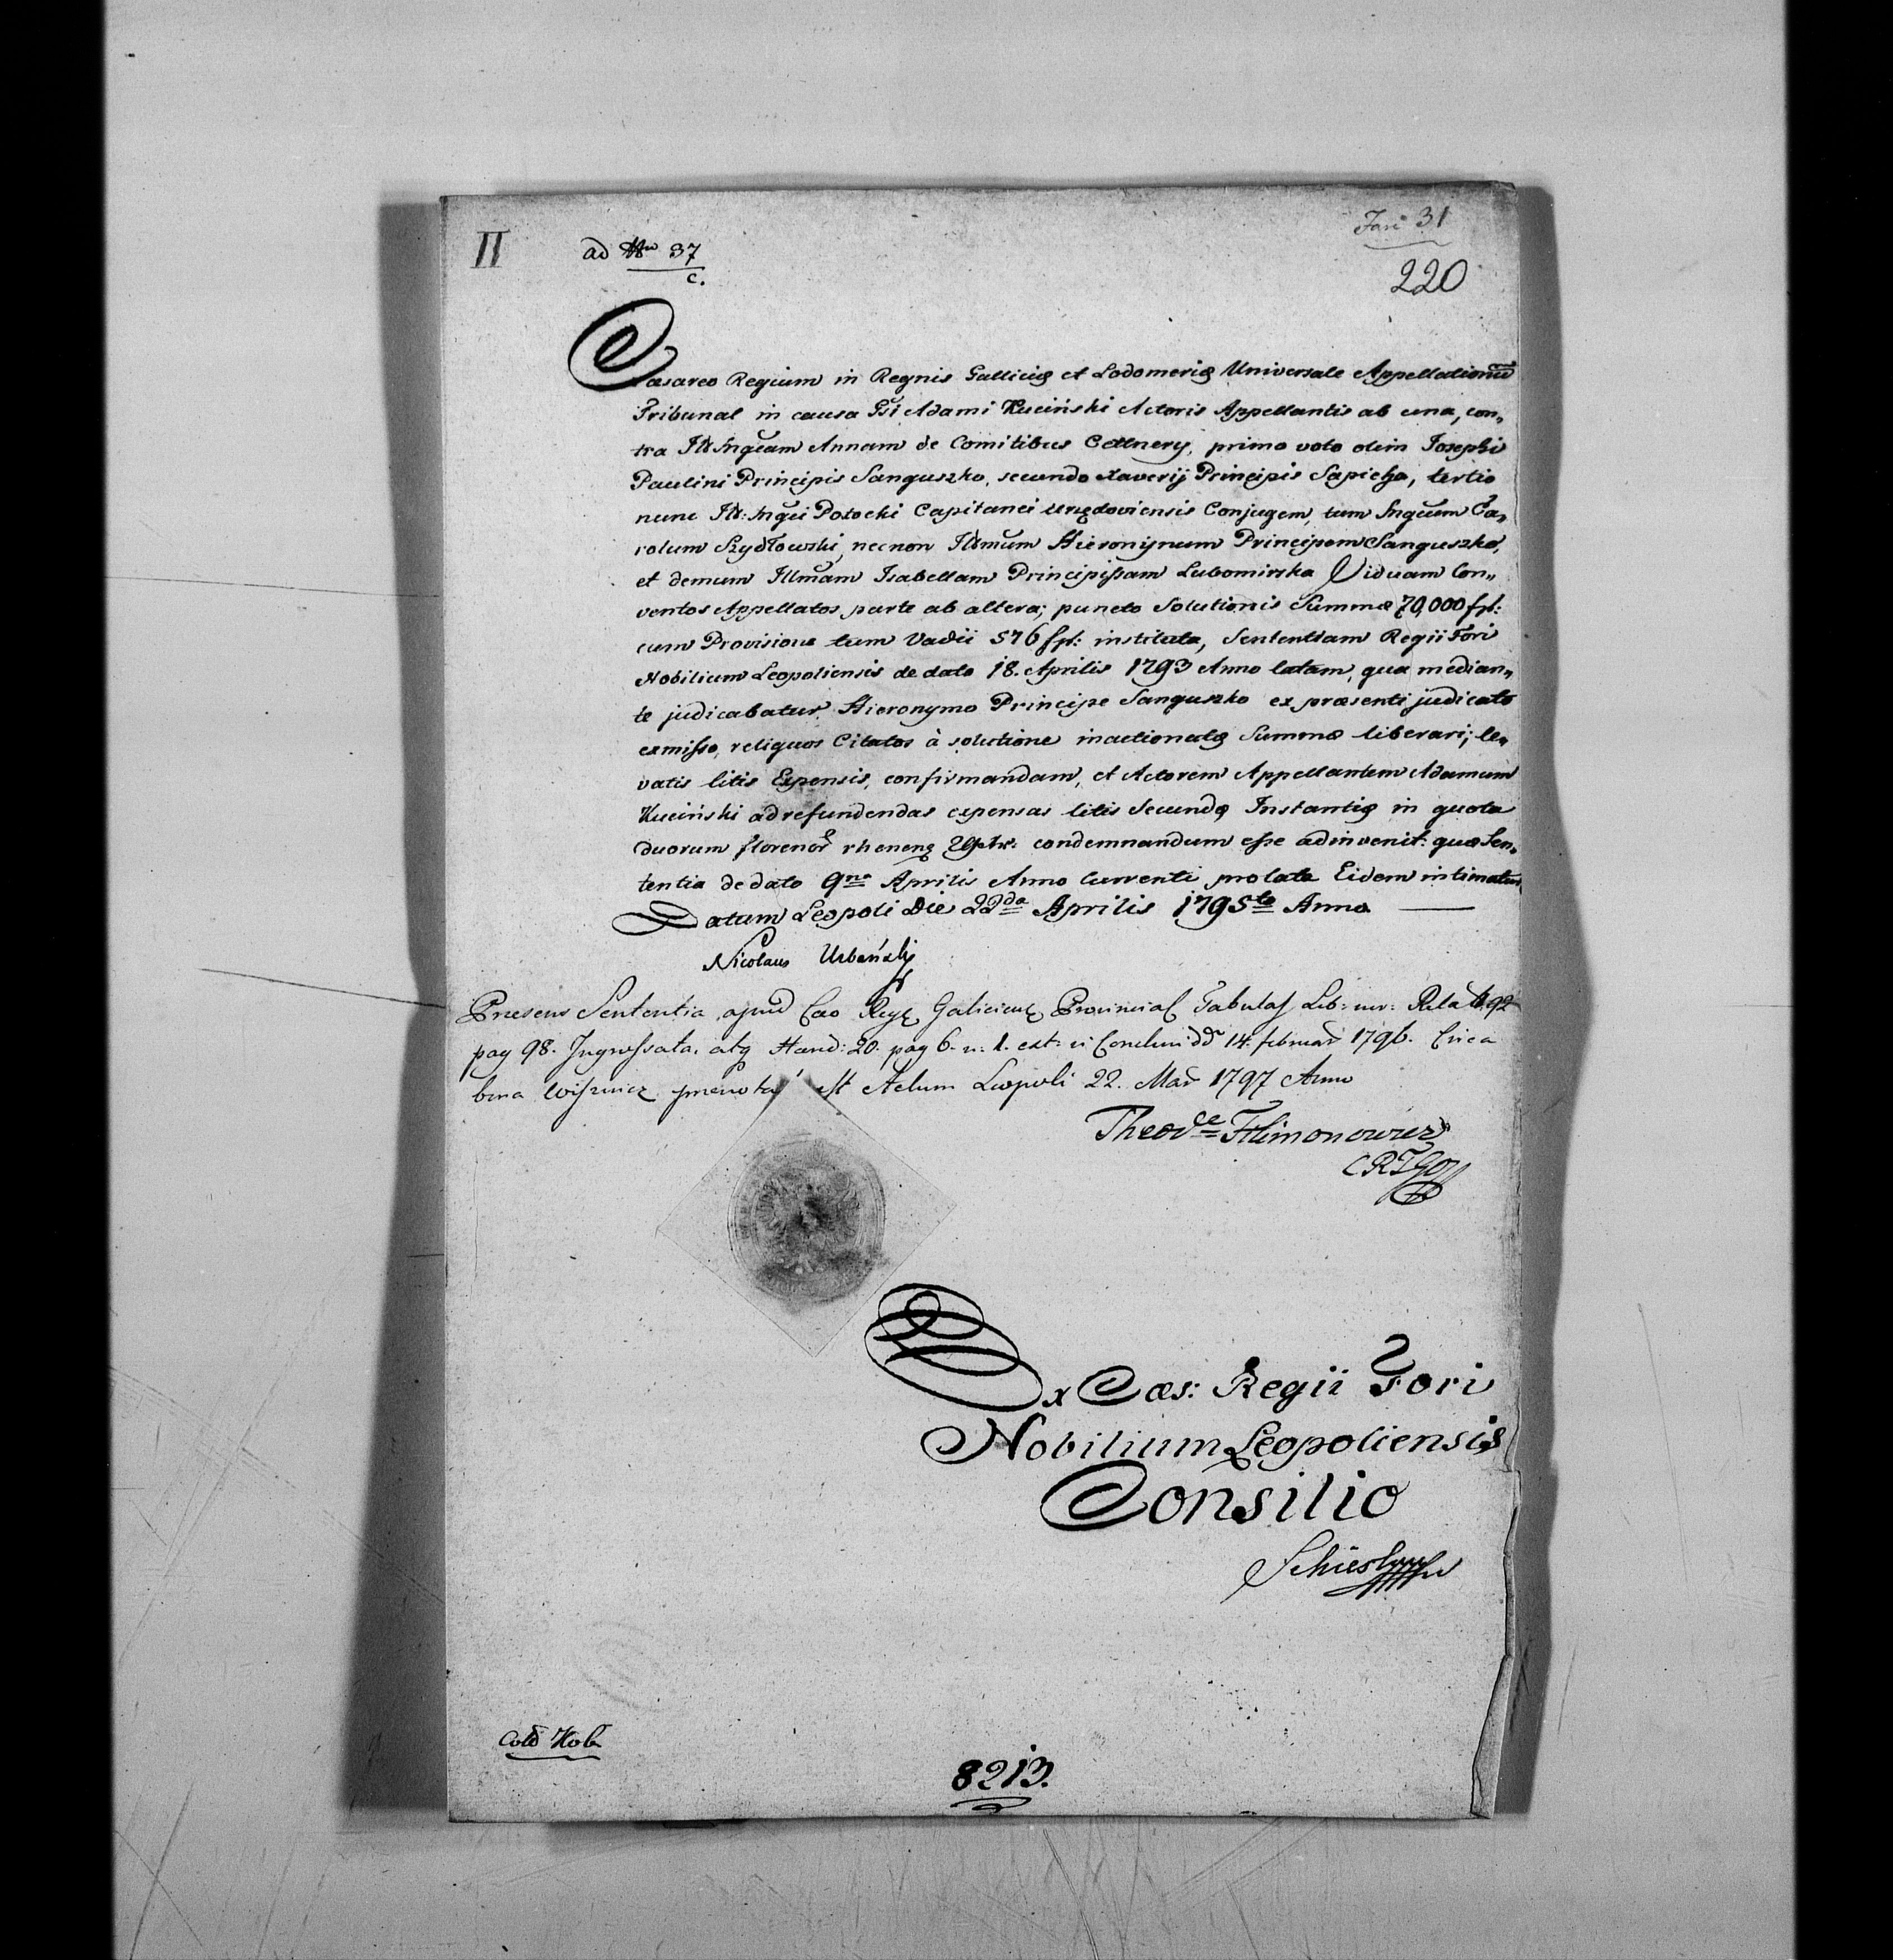 II
ad Nro 37
c.
31
220
Cæsareo Regium in Regnis Galliciæ et Lodomeriæ Universale Appellationũ
Tribunal in causa Gsi Adami Kuciński Actoris Appellantis ab una, con„
tra Ill: Mgũam Annam de Comitibus Cettnery, primo voto olim Josephi
Paulini Principis Sanguszko, secundo Xaverij Principis Sapieha, tertio
nunc Ill: Mgũi Potocki Capitanei Urzędoviensis Conjugem, tum Mgũum Ca„
rolum Szydłowski, necnon Illmũm Hieronijmum Principem Sanguszko,
et demum Illmam Isabellam Principissam Lubomirska Viduam Con„
ventos Appellatos parte ab altera; puncto Solutionis Summæ 70,000 fpl:
cum Provisione tum Vadii 576 fpl: instituta, Sententiam Regii Fori
Nobilium Leopoliensis de dato 18. Aprilis 1793 Anno latam, qua median„
te judicabatur Hieronymo Principe Sanguszko ex præsenti judicato
exmisso, reliquos Citatos à solutione inactionatæ Summæ liberari; le„
vatis litis Expensis, confirmandam, et Actorem Appellantem Adamum
Kuciński ad refundendas expensas litis Secundæ Instantiæ in quota
duorum florenor rheneng condemnandum esse adinvenit: quæ Sen„
tentia de dato 9na Aprilis Anno Currenti prolata Eidem intimatur
Datum Leopoli Die 22da Aprilis 1795to Anno
Nicolaus Urbański
Præsens Sententia apud Cæo Regę Galicien Provincial Tabulas Lib:
pag 98. Ingrossata, atq 20. pag 6. n: 1. ext: 14. februar 1796. Circa
bona Wiśnicz prænota est Actum Leopoli 22. Mar 1797 Anno
Ex Cæs: Regii Fori
Nobilium Leopoliensis
Consilio
8213.